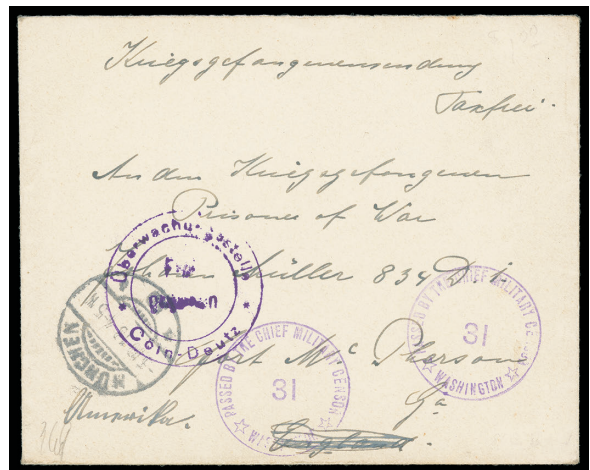 Kriegsgefangenensendung
Taxfrei.
An den Kriegsgefangenen
Prisoner of War
Müller 834
Fort Mc Pherson
Ga
Amerika.
England.
Überwachungsstelle
Cöln-Deutz
MÜNCHEN
PASSED BY THE CHIEF MILITARY CENSOR
31
WASHINGTON
PASSED BY THE CHIEF MILITARY CENSOR
31
WASHINGTON